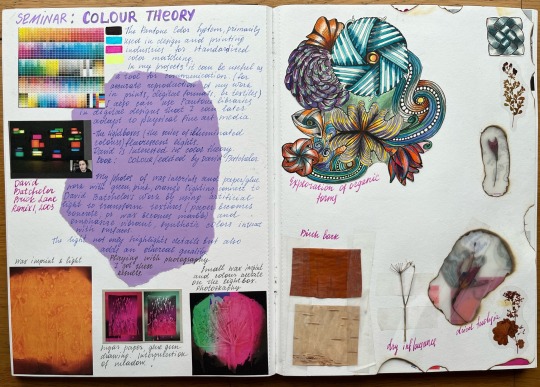 SEMINAR: COLOUR THEORY
The Pantone Color System, primarily
used in design and printing
industries for standardised
color matching.
In my projects it can be useful as
tool for communication (for
accurate reproduction of my work
in prints, digital formats, or textiles)
help can use Pantone libraries
in digital design that I can later
adapt to physical fine art media
The lightboxes (the series of illuminated
colours) fluorescent lights.
David is interested in color theory
book: Colour, edited by David Batchelor
David
Batchelor
Brick Lane
Remix I, 2003
My photos of wax imprints and paper/glue
work with green, pink, orange lighting similar to
David Batchelor's work by using artificial
light to transform textures, paper becomes
and
emphasise vibrant, synthetic colors interact
with surface
The light not only highlights details but also
adds an ethereal quality
Playing with photography
I got these
results
wax imprint & light
Small wax imprint
and colour acetate
on the lightbox.
Photography
Sugar paper, glue gun
drawing interpretation
of
Exploration of organic
forms
Birch bark
dry
dried